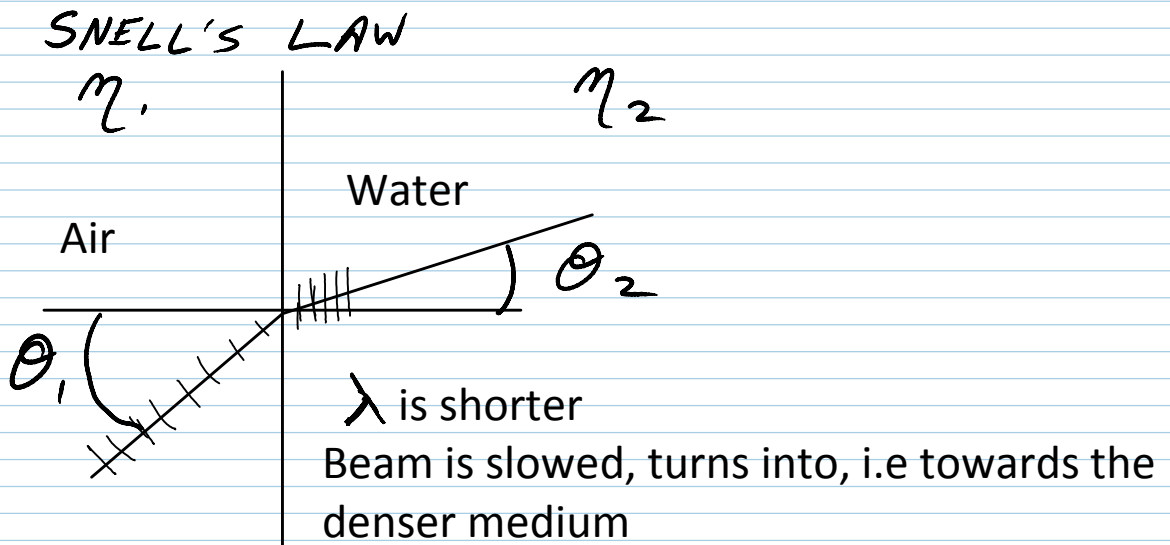 SNELL'S LAW
η1 η2
Water
Air
θ2
θ1
λ is shorter
Beam is slowed, turns into, i.e towards the
denser medium